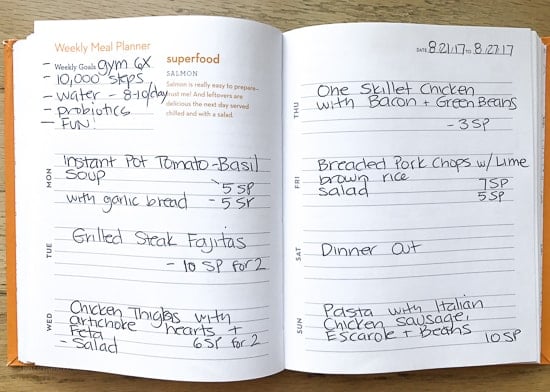 Weekly Meal Planner
Weekly Goals gym 6X
- 10,000 steps
- water - 8-10/day
- probiotics
- FUN!
superfood
SALMON
Salmon is really easy to prepare–
trust me! And leftovers are
delicious the next day served
chilled and with a salad.
MON
Instant Pot Tomato-Basil
Soup
5 SP
with garlic bread - 5 SP
TUE
Grilled Steak Fajitas
- 10 SP for 2
WED
Chicken Thighs with
artichoke hearts +
Feta
- Salad 6 SP for 2
DATE 8.21.17 to 8.27.17
THU
One Skillet Chicken
with Bacon + Green Beans
- 3 SP
FRI
Breaded Pork Chops w/ Lime
brown rice 7SP
salad 5 SP
SAT
Dinner Out
SUN
Pasta with Italian
Chicken sausage,
Escarole + Beans
10 SP